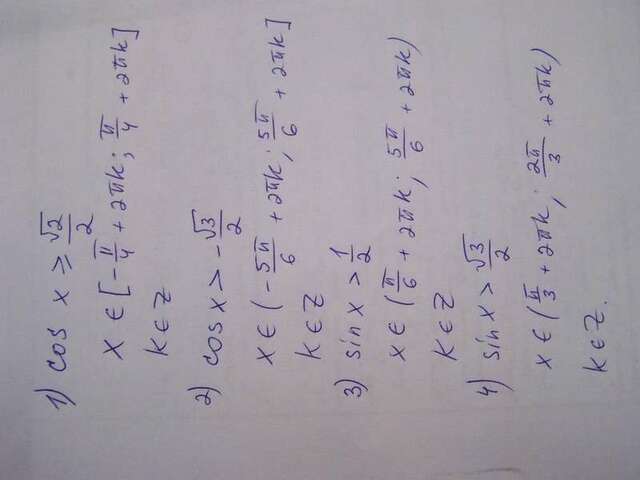 1) cos x ≥ √2/2
x ∈ [-π/4 + 2πk; π/4 + 2πk]
k ∈ Z
2) cos x > -√3/2
x ∈ (-5π/6 + 2πk; 5π/6 + 2πk]
k ∈ Z
3) sin x > 1/2
x ∈ (π/6 + 2πk; 5π/6 + 2πk)
k ∈ Z
4) sin x > √3/2
x ∈ (π/3 + 2πk; 2π/3 + 2πk)
k ∈ Z.